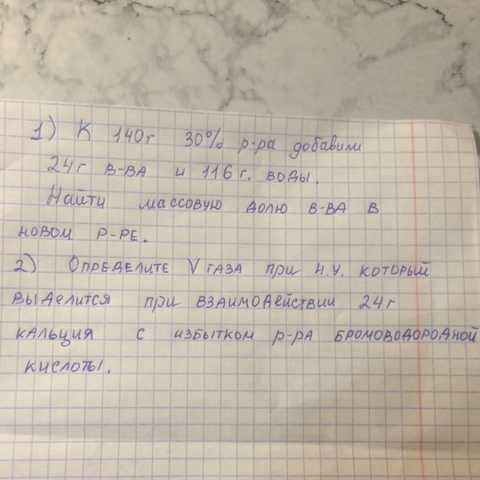 1) К 140г 30% р-ра добавили
24г в-ва и 116 г. воды.
Найти массовую долю в-ва в
новом р-ре.
2) Определите V газа при н.у. который
выделится при взаимодействии 24г
кальция с избытком р-ра бромоводородной
кислоты.